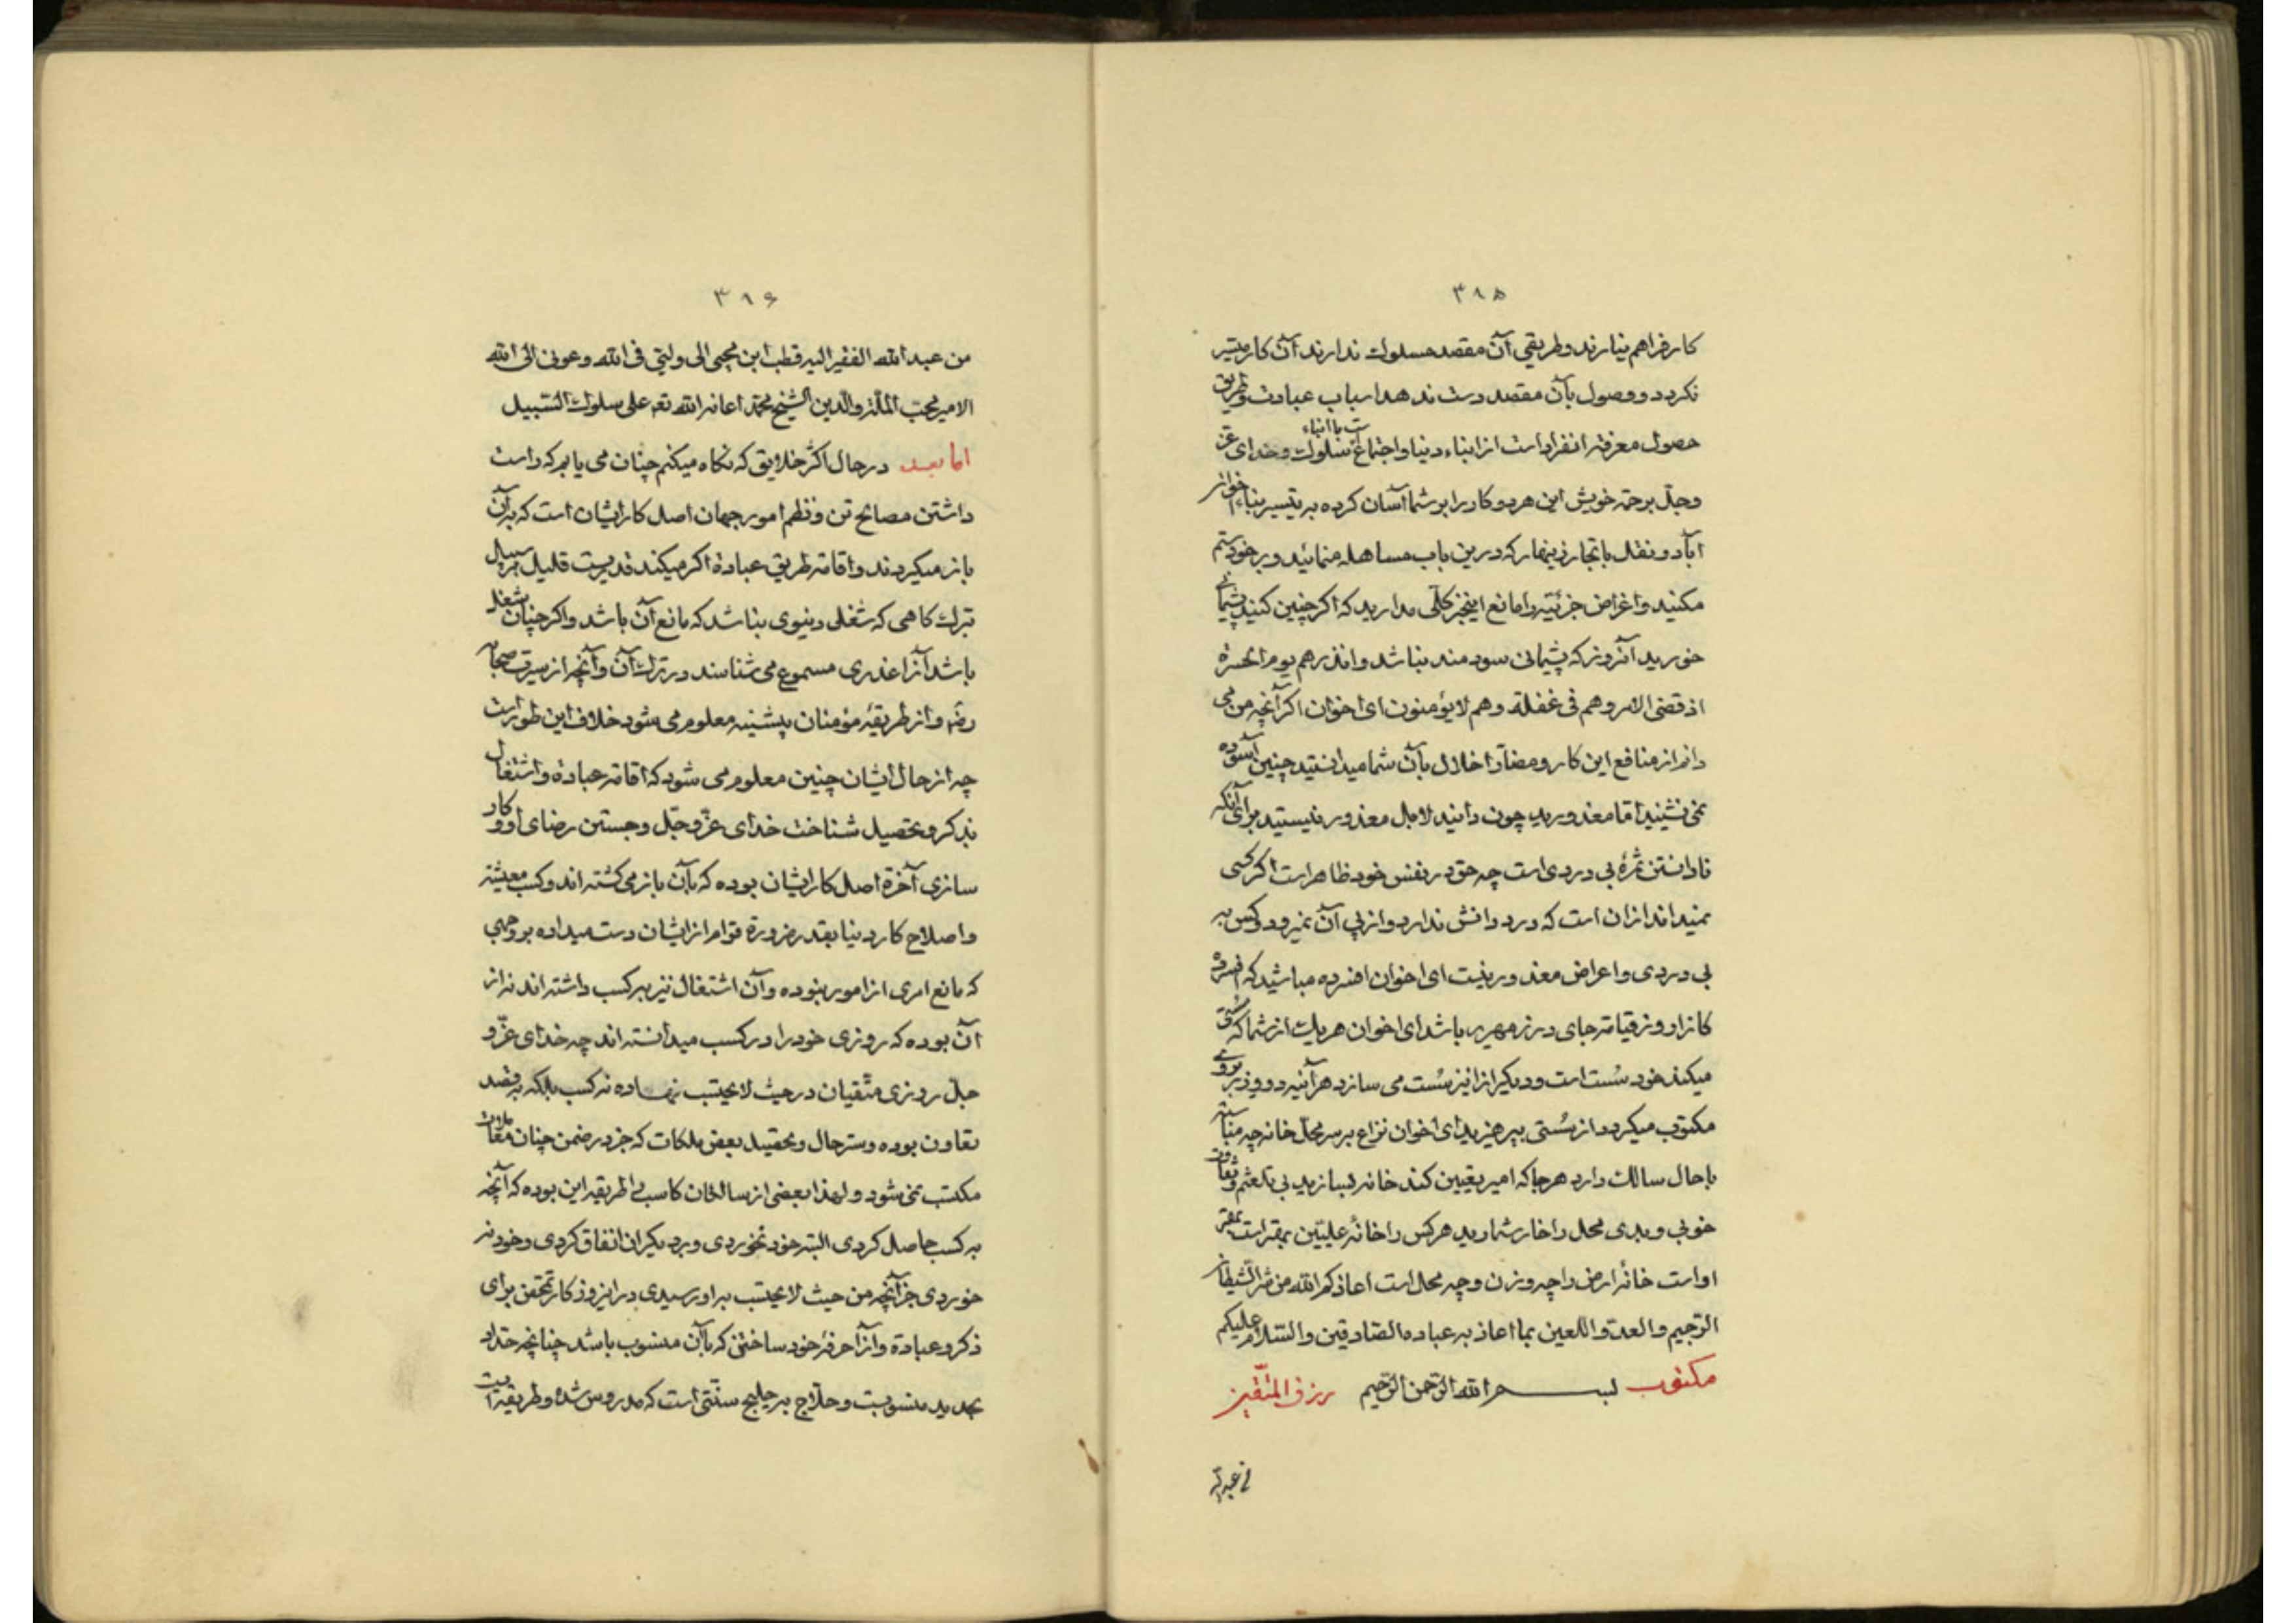 ۳۸۵
کار فراهم نیارند و طریقی آن مقصد مسلوک ندارند آن کار میسر
نکردد و وصول بآن مقصد دست ندهد اسباب عبادت و طریق
حصول معرفة انفرادست از ابناء دنیا و اجتماعست با ابناء سلوک و خدای عز
وجل برحمة خویش این هر دو کار را بر شما آسان کرده به تیسیر بناء اخوان
اباد و نقل بآنجا زینهار که درین باب مساهله منمائید و بر خود ستم
مکنید و اغراض جزئیه را مانع این خیر کلی مدارید که اکر چنین کنید پشیمانی
خورید آنروز که پشیمانی سودمند نباشد وانذرهم یوم الحسرة
اذ قضی الامر وهم فی غفلة وهم لایؤمنون ای اخوان اکر آنچه من می
دانم از منافع این کار و مضار اخلال بآن شما میدانستید چنین آسوده
نمی نشینید اما معذورید چون دانید لا بل معذور نیستید برای آنکه
نادانستن ثمرهٔ بی دردی است چه حق در نفس خود ظاهر است اکر کسی
نمیداند ازان است که درد دانش ندارد و از پی آن نمیرود و کس به
بی دردی و اعراض معذور نیست ای اخوان افسرده مباشید که افسرده
کانرا روز قیامة جای در زمهریر باشد ای اخوان هر یک از شما که سستی
میکند خود سست است و دیکرانرا نیز سست می سازد هرآینه دو وزر بر وی
مکتوب میکردد از سستی بپرهیزید ای اخوان نزاع بر سر محل خانه چه مناسبة
با حال سالک دارد هر جا که امیر تعیین کند خانه بسازید بی تلعثم و تفاوت
خوبی و بدی محل را خار شمارید هر کس را خانهٔ علیین مقر است
اوراست خانهٔ ارض را چه وزن و چه محل است اعاذکم الله من شر الشیطان
الرجیم والعدو اللعین بما اعاذ به عباده الصادقین والسلام علیکم
مکتوب بسم الله الرحمن الرحیم رزق المتقین
من عبد الله
۳۸۶
من عبد الله الفقیر الیه قطب ابن محیی الی ولیتی فی الله وعونی الی الله
الامیر محب الملة والدین الشیخ محمد اعانه الله تع علی سلوک السبیل
اما بعد در حال اکثر خلایق که نکاه میکنم چنان می یابم که راست
داشتن مصالح تن و نظم امور جهان اصل کار ایشان است که بدان
باز میکردند و اقامة طریق عبادة اکر میکنند قدریست قلیل بر سبیل
تبرک کاهی که شغلی دنیوی نباشد که مانع آن باشد و اکر چنان شغلی
باشد آنرا عذری مسموع می شناسند در ترک آن و آنچه از سیرت صحابه
رضه و از طریقهٔ مؤمنان پیشینه معلوم می شود خلاف این طور است
چه از حال ایشان چنین معلوم می شود که اقامة عبادة و اشتغال
بذکر و تحصیل شناخت خدای عز وجل و جستن رضای او و کار
سازی آخرة اصل کار ایشان بوده که بآن باز می کشته اند و کسب معیشة
و اصلاح کار دنیا بقدر ضرورة قوام از ایشان دست میداده بر وجهی
که مانع امری از امور نبوده و آن اشتغال نیز بر کسب داشته اند نه از
آن بوده که روزی خود را در کسب میدانسته اند چه خدای عز و
جل روزی متقیان در حیث لایحتسب نهاده نه کسب بلکه به قصد
تعاون بوده و ستر حال و تحصیل بعض ملکات که جز در ضمن چنان
مکتسب نمی شود و لهذا بعضی از سالخان کاسب را طریقه این بوده که آنچه
بر کسب حاصل کردی البته خود نخوردی و بر دیکران انفاق کردی و خود نه
خوردی جز آنچه من حیث لایحتسب به او رسیدی درانروز کار تمحض برای
ذکر و عبادة و آنرا حرفهٔ خود ساختن که بآن منسوب باشد چنانچه حداد
بحدید منسوبست و حلاج به حلیج سنتی است که مدروس شده و طریقه ایست